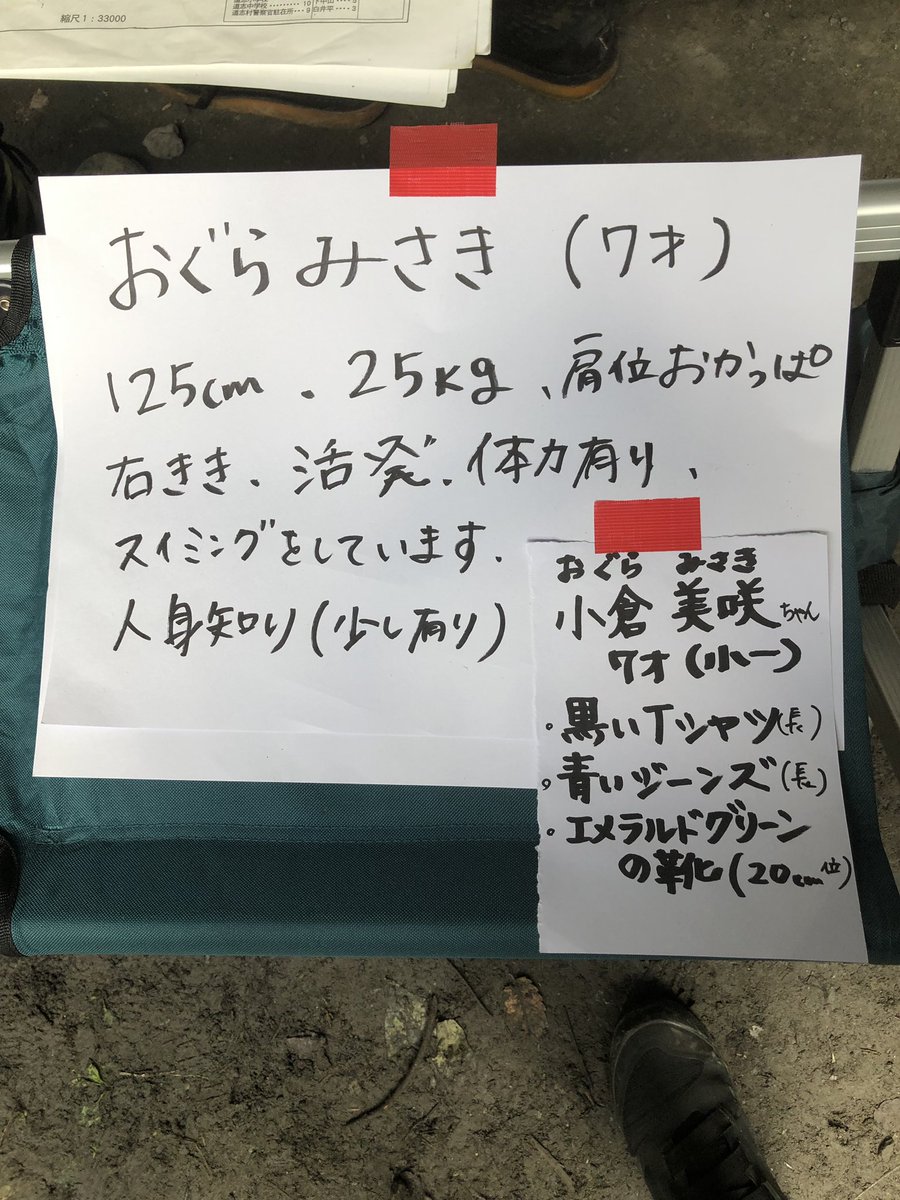 縮尺1：33000
道志中学校………10
道志村警察官駐在所…9
白井平…3
おぐらみさき（7才）
125cm、25kg、肩位おかっぱ
右きき、活発、体力有り、
スイミングをしています。
人身知り（少し有り）
おぐら みさき
小倉 美咲ちゃん
7才（小一）
・黒いTシャツ（長）
・青いジーンズ（長）
・エメラルドグリーン
の靴（20cm位）